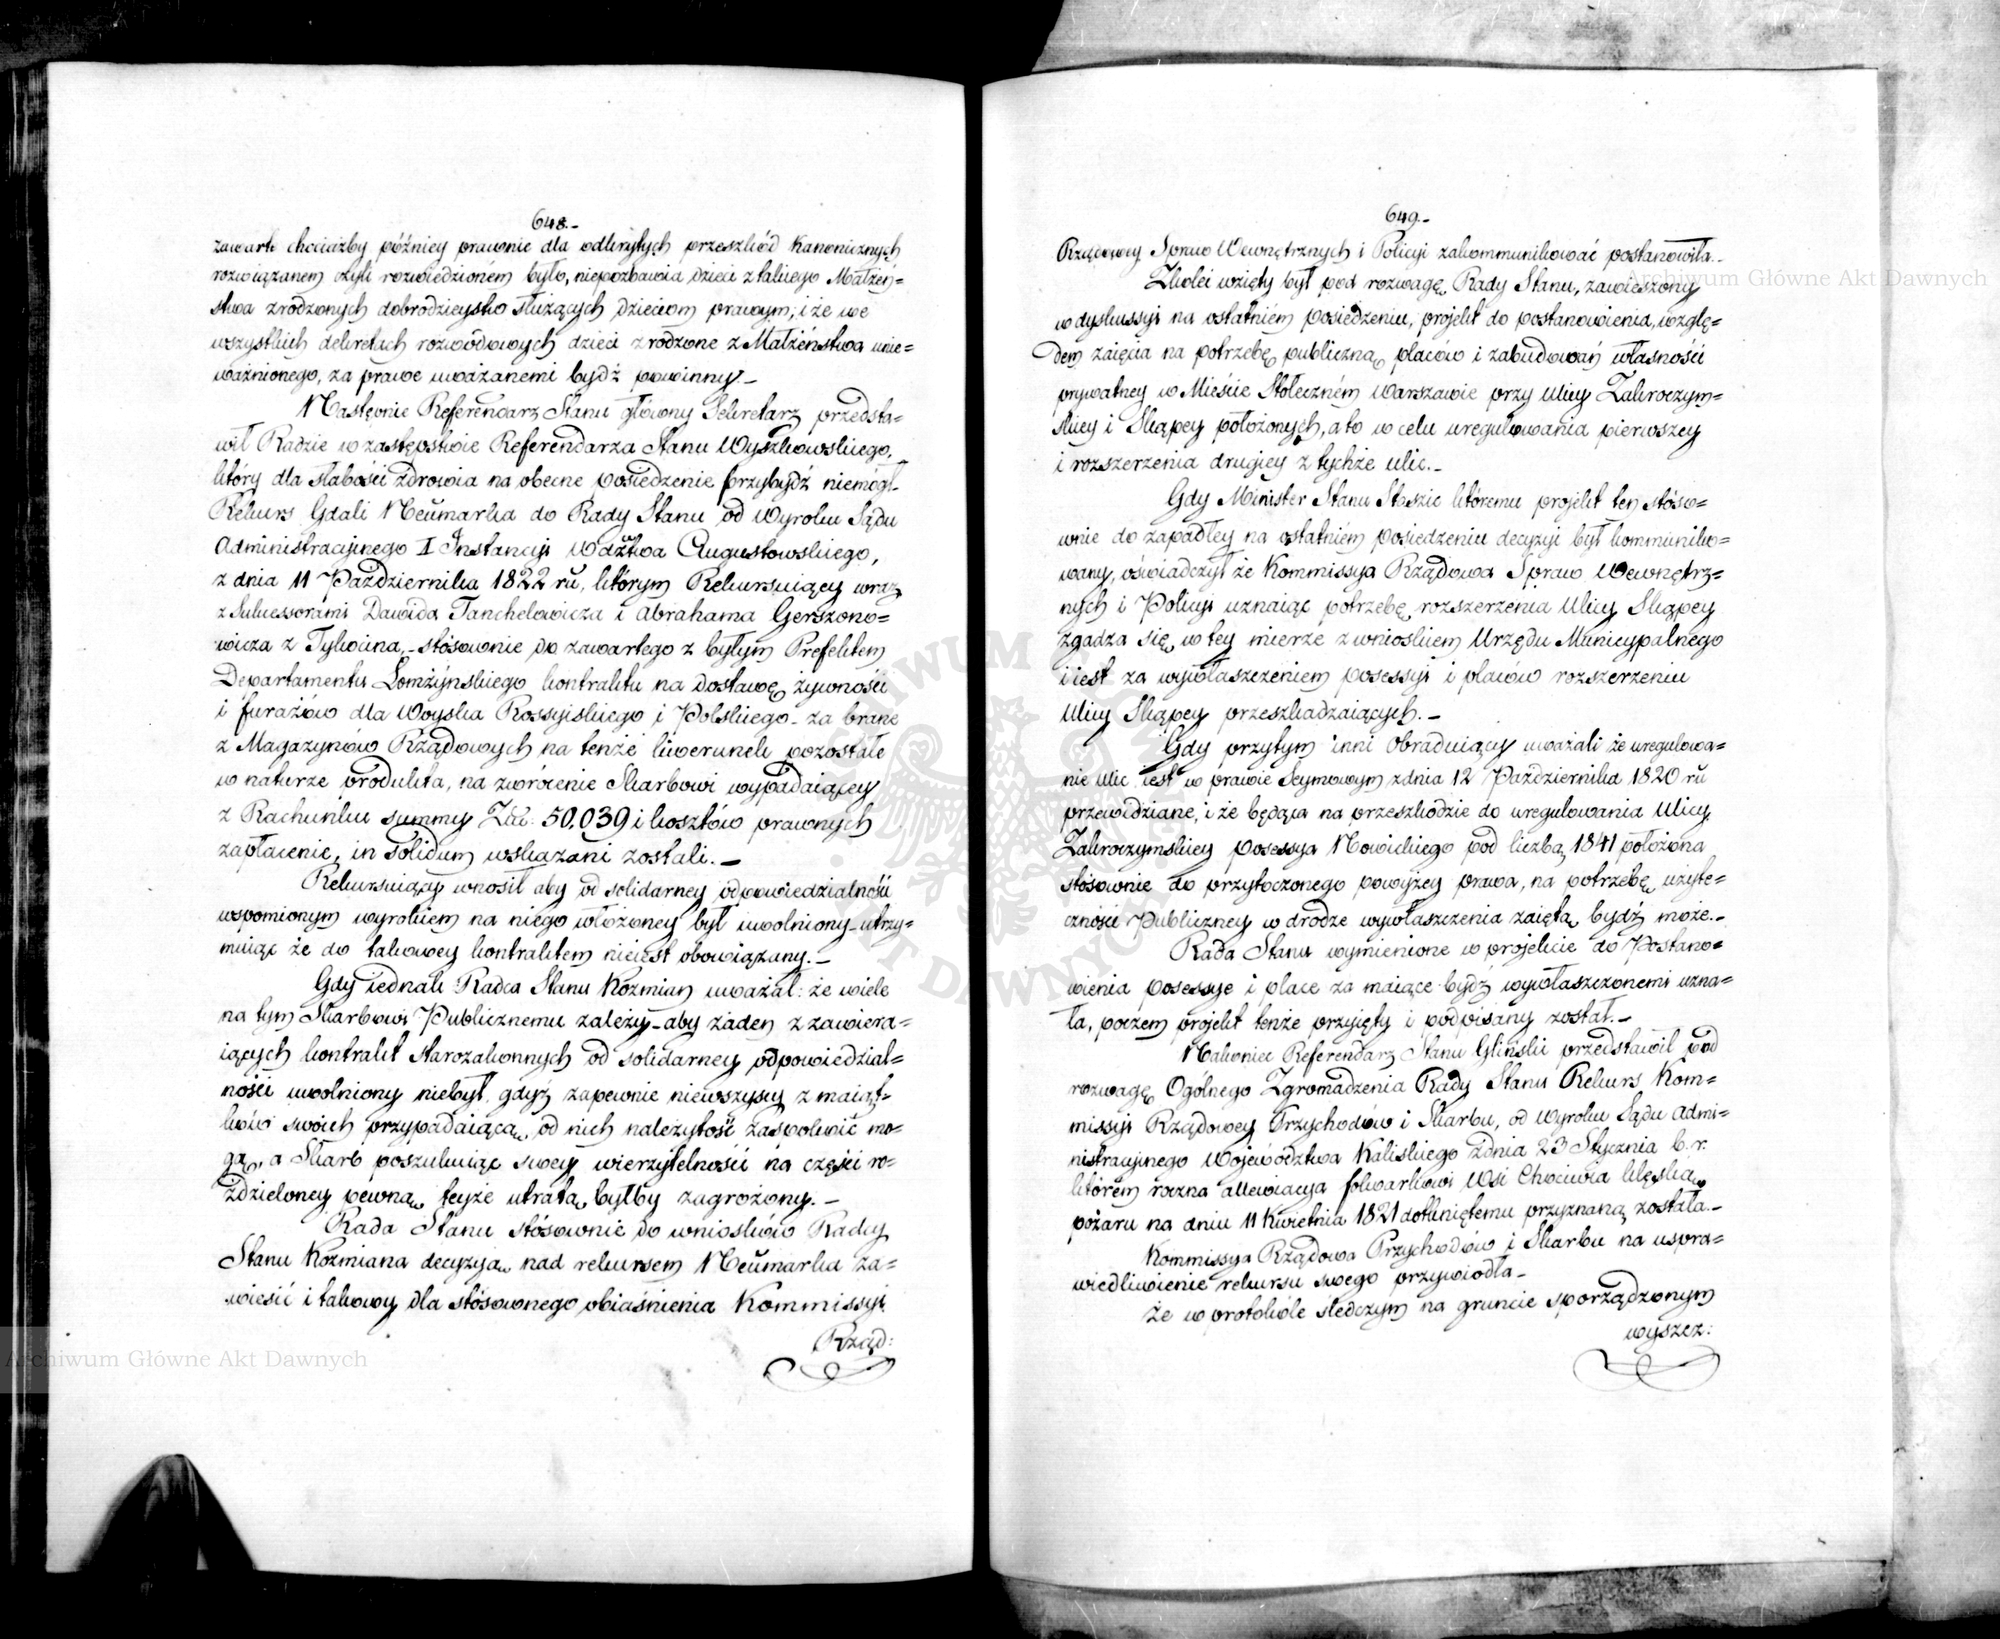 648.-
zawarte chociażby późniey prawnie dla odkrytych przeszkód Kanonicznych
rozwiązanem czyli rozwiedzioném było, niepozbawia dzieci z takiego Małżeń=
stwa zrodzonych dobrodzieystw służących dzieciom prawym; i że we
wszystkich dekretach rozwodowych dzieci zrodzone z Małżeństwa unie=
ważnionego, za prawe uważanemi bydź powinny.-
Następnie Referendarz Stanu główny Sekretarz przedsta=
wił Radzie w zastępstwie Referendarza Stanu Wyszkowskiego,
który dla słabości zdrowia na obecne posiedzenie przybydź niemógł-
Rekurs Gdali Neümarka do Rady Stanu od Wyroku Sądu
Administracyjnego I Instancyi Wdztwa Augustowskiego,
z dnia 11 Października 1822 rũ, którym Rekursuiący wraz
z Sukcessorami Dawida Tanchelowicza i Abrahama Gerszono=
wicza z Tykocina,- stósownie do zawartego z byłym Prefektem
Departamentu Łomżyńskiego kontraktu na dostawę żywności
i furażów dla Woyska Rossyiskiego i Polskiego- za brane
z Magazynów Rządowych na tenże liwerunek pozostałe
w naturze produkta, na zwrócenie Skarbowi wypadaiącey
z Rachunku summy Złt: 50,039 i kosztów prawnych
zapłacenie, in solidum wskazani zostali.-
Rekursuiący wnosił aby od solidarney odpowiedzialności
wspomionym wyrokiem na niego włożoney był uwolniony- utrzy=
muiąc że do takowey kontraktem nieiest obowiązany.-
Gdy iednak Radca Stanu Koźmian uważał: że wiele
na tym Skarbowi Publicznemu zależy- aby żaden z zawiera=
iących kontrakt starozakonnych od solidarney odpowiedzial=
ności uwolniony niebył, gdyż zapewnie niewszyscy z maiąt=
ków swoich przypadaiącą od nich należytość zaspokoić mo=
gą, a Skarb poszukuiąc swey wierzytelności na części ro=
zdzieloney pewną teyże utratą byłby zagrożony.-
Rada Stanu stósownie do wniosków Radcy
Stanu Koźmiana decyzyą nad rekursem Neümarka za=
wiesić i takowy dla stósownego obiaśnienia Kommissyi
Rząd:
649.-
Rządowey Spraw Wewnętrznych i Policyi zakommunikować postanowiła.-
Zkolei wzięty był pod rozwagę Rady Stanu, zawieszony
w dyskussyi na ostatniém posiedzeniu, projekt do postanowienia, wzglę=
dem zaięcia na potrzebę publiczną placów i zabudowań własności
prywatney w Mieście Stołeczném Warszawie przy Ulicy Zakroczym=
skiey i Skąpey położonych, a to w celu uregulowania pierwszey
i rozszerzenia drugiey z tychże ulic.-
Gdy Minister Stanu Staszic któremu projekt ten stóso=
wnie do zapadłey na ostatniém posiedzeniu decyzyi był kommuniko=
wany, oświadczył że Kommissya Rządowa Spraw Wewnętrz=
nych i Policyi uznaiąc potrzebę rozszerzenia Ulicy Skąpey
zgadza się w tey mierze z wnioskiem Urzędu Municypalnego
i iest za wywłaszczeniem posessyi i placów rozszerzeniu
Ulicy Skąpey przeszkadzaiących.-
Gdy przytym inni Obraduiący uważali że uregulowa=
nie ulic iest w prawie Seymowym z dnia 12 Października 1820 rũ
przewidziane, i że będąca na przeszkodzie do uregulowania Ulicy
Zakroczymskiey posessya Nowickiego pod liczbą 1841 położona
stósownie do przytoczonego powyżey prawa, na potrzebę użyte=
czności Publiczney w drodze wywłaszczenia zaiętą bydź może.-
Rada Stanu wymienione w projekcie do Postano=
wienia posessye i place za maiące bydź wywłaszczonemi uzna=
ła, poczem projekt tenże przyięty i podpisany został.-
Nakoniec Referendarz Stanu Gliński przedstawił pod
rozwagę Ogólnego Zgromadzenia Rady Stanu Rekurs Kom=
missyi Rządowey Przychodów i Skarbu, od Wyroku Sądu Admi=
nistracyjnego Województwa Kaliskiego z dnia 23 Stycznia b. r.
którém roczna allewiacya folwarkowi Wsi Chociwia klęską
pożaru na dniu 11 Kwietnia 1821 dotkniętemu przyznaną została.-
Kommissya Rządowa Przychodów i Skarbu na uspra=
wiedliwienie rekursu swego przywiodła-
Że w protokóle śledczym na gruncie sporządzonym
wyszcz:
Archiwum Główne Akt Dawnych
Archiwum Główne Akt Dawnych